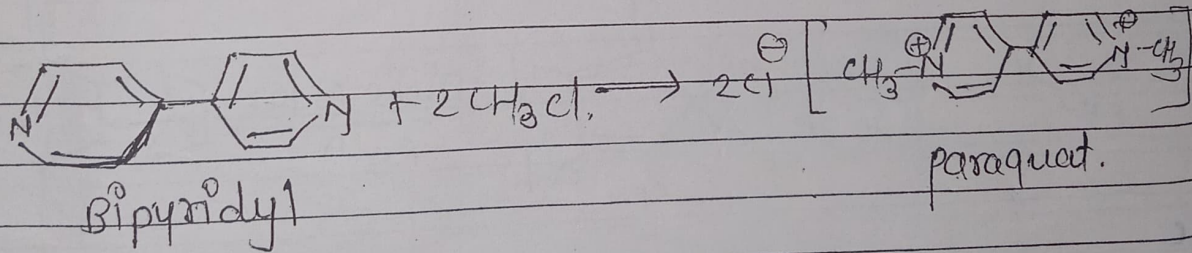 N N + 2 CH3Cl. → 2Cl⊖ [CH3-N⊕ N⊕-CH3]
Bipyridyl
paraquat.